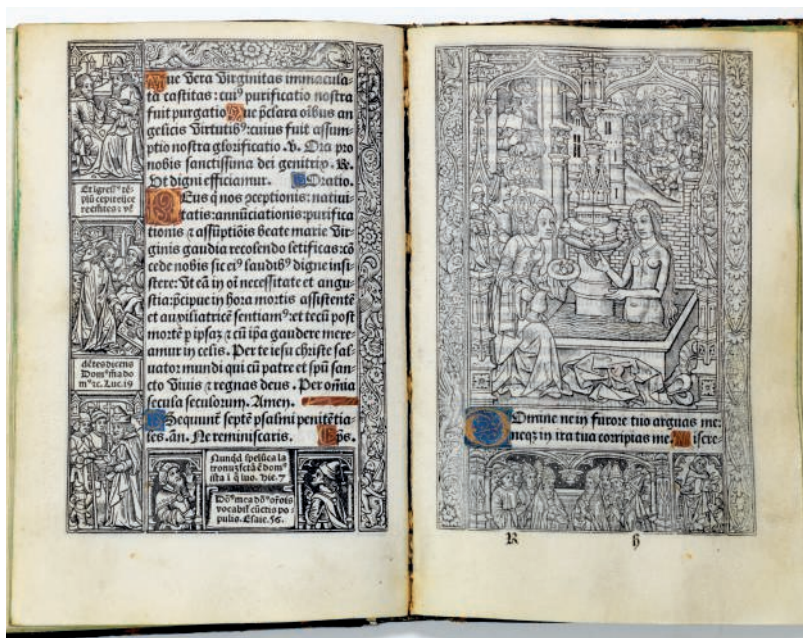 Aue vera virginitas immacula-
ta castitas: cuiꝰ purificatio nostra
fuit purgatio Aue p̄clara oībus an
gelicis virtutibꝰ: cuius fuit assum
ptio nostra glorificatio. v. Ora pro
nobis sanctissima dei genitrix. R.
Ut digni efficiamur. Oratio.
DEus q̄ nos ꝯceptionis: natiui
tatis: annūciationis: purifica
tionis ⁊ assūptiōis beate marie vir-
ginis gaudia recolendo letificas: cō
cede nobis sic eiꝰ laudibꝰ digne insi
stere: vt eā in oī necessitate et angu
stia: p̄cipue in hora mortis assistentē
et auxiliatricē sentiamꝰ: et tecū post
mortē p ipsaꝫ ⁊ cū ip̄a gaudere mere-
amur in celis. Per te iesu christe sal-
uator mundi qui cū patre et spū san-
cto viuis ⁊ regnas deus. Per om̄ia
secula seculorum. Amen.
Sequunt septē psalmi penitētia-
les. an. Ne reminiscaris. Ep̄s.
Et īgress⁹ tē-
plū cepit eijce
re
dētes dicens
Dom⁹ m̄a do
m⁹ ꝛc. Luc. 19
Nunqd spelūca la
tronuꝫ fctā ē dom⁹
ista ī q̄ īuo. Hie. 7
Do⁹ mea do⁹ orōis
vocabit cūctis po-
pulis. Esaie. 56.
Domine ne in furore tuo arguas me:
neqꝫ in ira tua corripias me. Misere-
R h